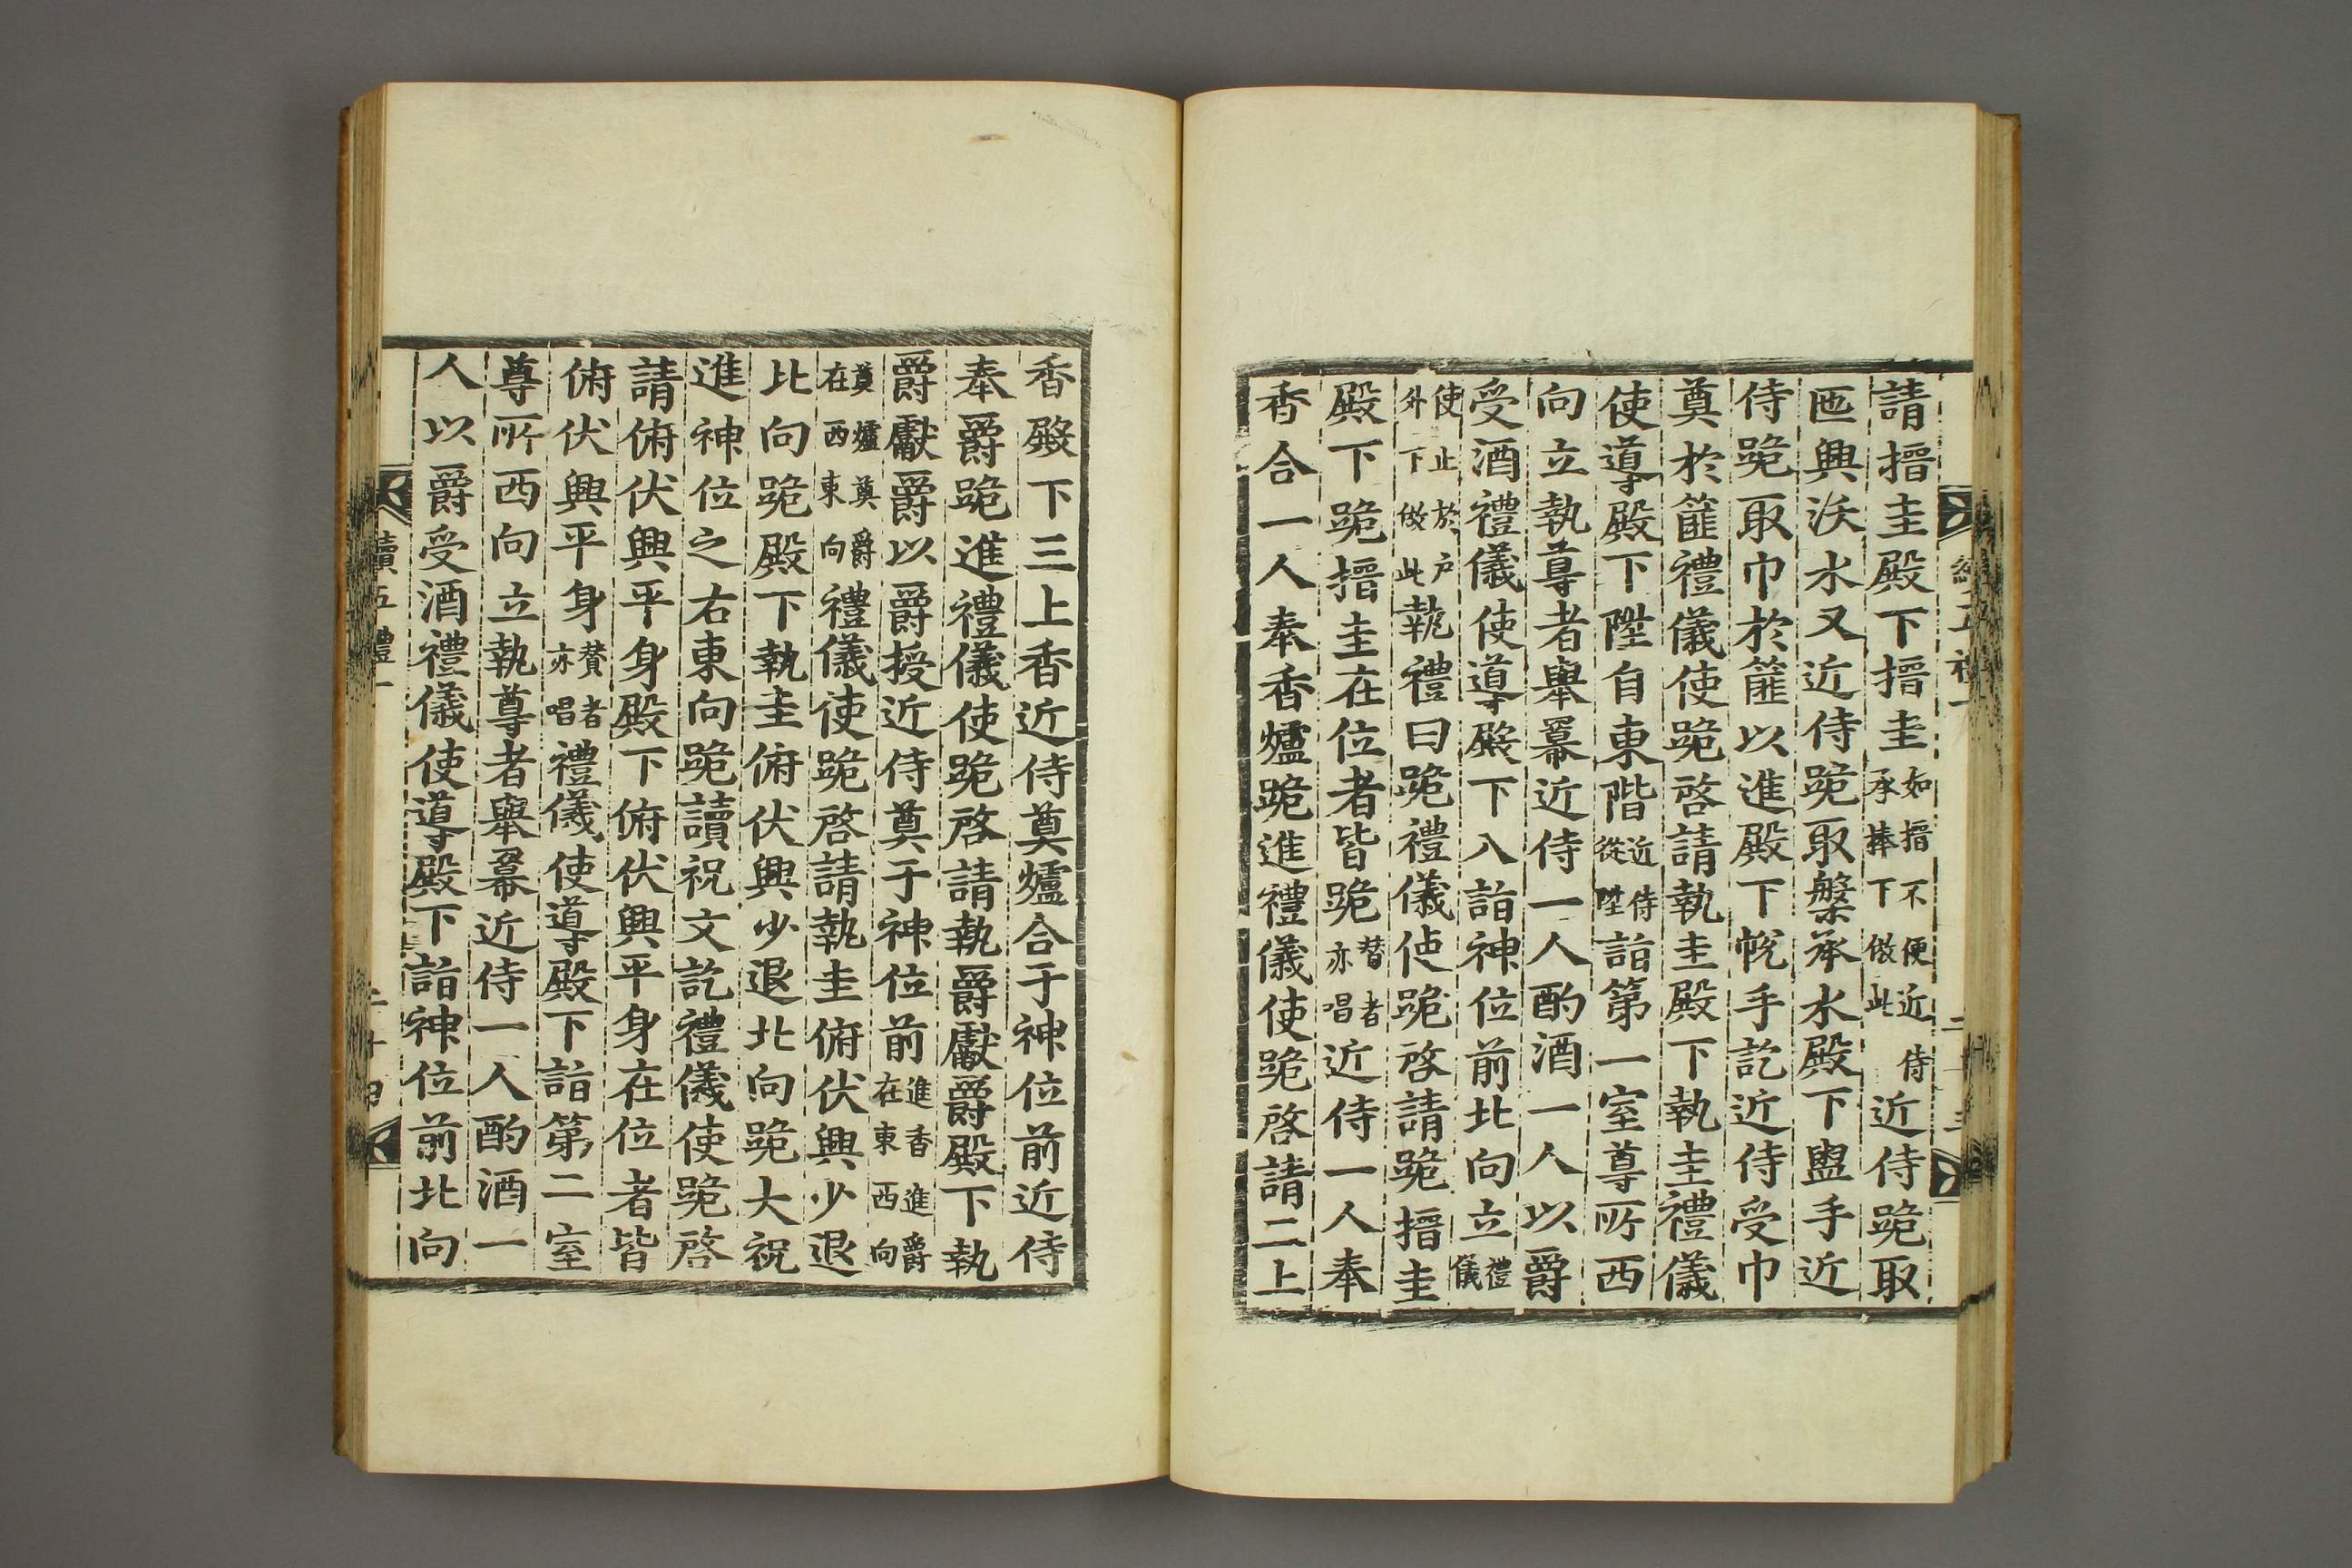 請搢圭殿下搢圭如搢不便近侍承捧下倣此近侍跪取
匜興沃水又近侍跪取槃承水殿下盥手近
侍跪取巾於篚以進殿下帨手訖近侍受巾
奠於篚禮儀使跪啓請執圭殿下執圭禮儀
使導殿下陞自東階近侍從陞詣第一室尊所西
向立執尊者擧冪近侍一人酌酒一人以爵
受酒禮儀使導殿下入詣神位前北向立禮儀
使止於戶外下倣此執禮曰跪禮儀使跪啓請跪搢圭
殿下跪搢圭在位者皆跪贊者亦唱近侍一人奉
香合一人奉香爐跪進禮儀使跪啓請三上
香殿下三上香近侍奠爐合于神位前近侍
奉爵跪進禮儀使跪啓請執爵獻爵殿下執
爵獻爵以爵授近侍奠于神位前進香進爵在東西向
奠爐奠爵在西東向禮儀使跪啓請執圭俯伏興少退
北向跪殿下執圭俯伏興少退北向跪大祝
進神位之右東向跪讀祝文訖禮儀使跪啓
請俯伏興平身殿下俯伏興平身在位者皆
俯伏興平身贊者亦唱禮儀使導殿下詣第二室
尊所西向立執尊者擧冪近侍一人酌酒一
人以爵受酒禮儀使導殿下詣神位前北向
續五禮一